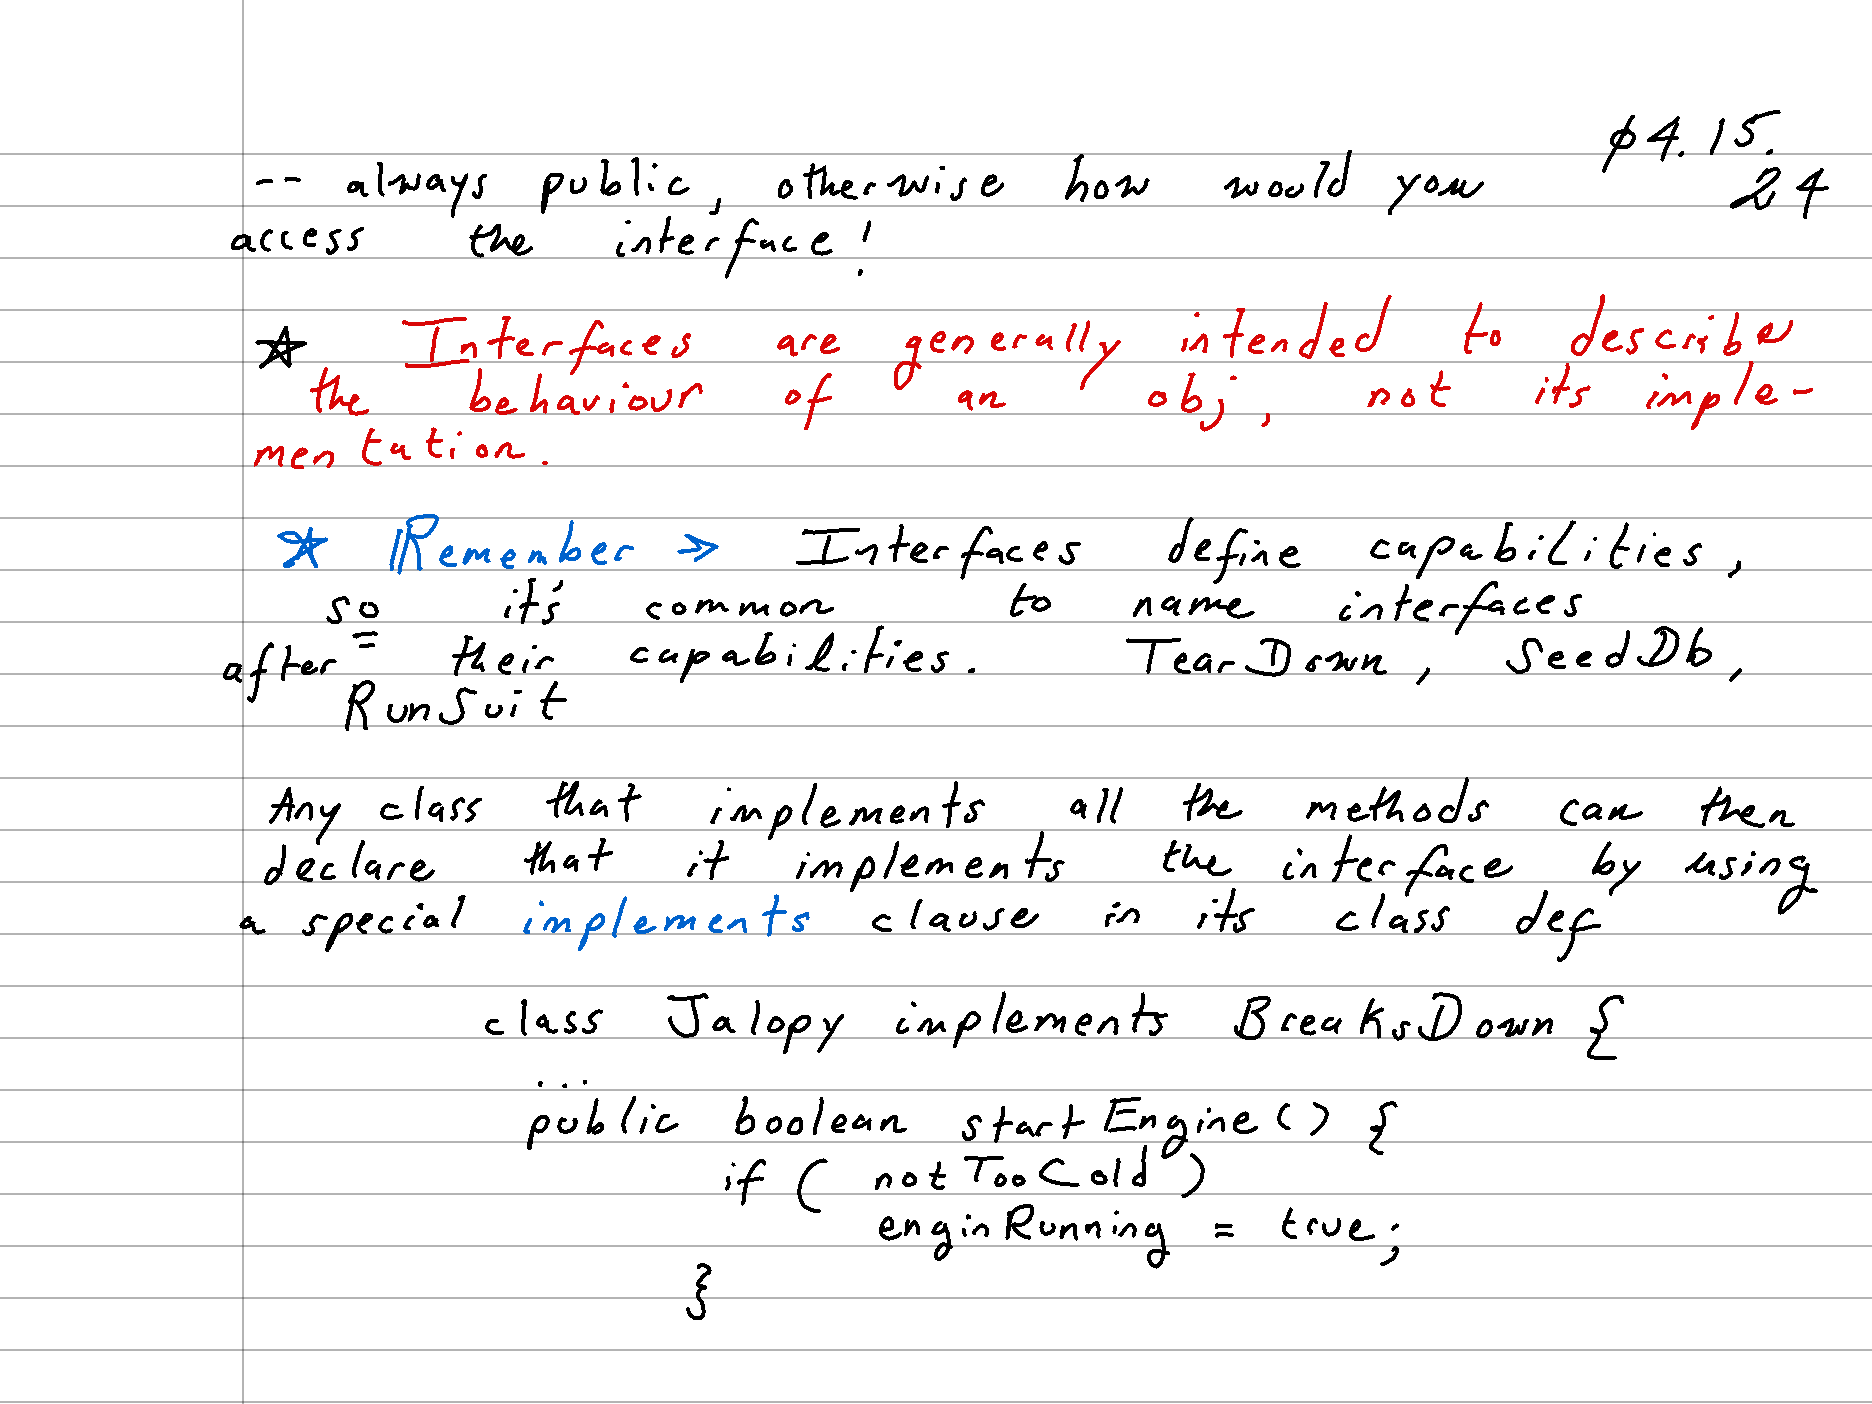 ø4.15.
24
-- always public, otherwise how would you
access the interface!
☆ Interfaces are generally intended to describe
the behaviour of an obj, not its imple-
mentation.
☆ Remember >> Interfaces define capabilities,
so it's common to name interfaces
after their capabilities. TearDown, SeedDb,
RunSuit
Any class that implements all the methods can then
declare that it implements the interface by using
a special implements clause in its class def
class Jalopy implements BreaksDown {
...
public boolean startEngine() {
if ( notTooCold )
enginRunning = true;
}